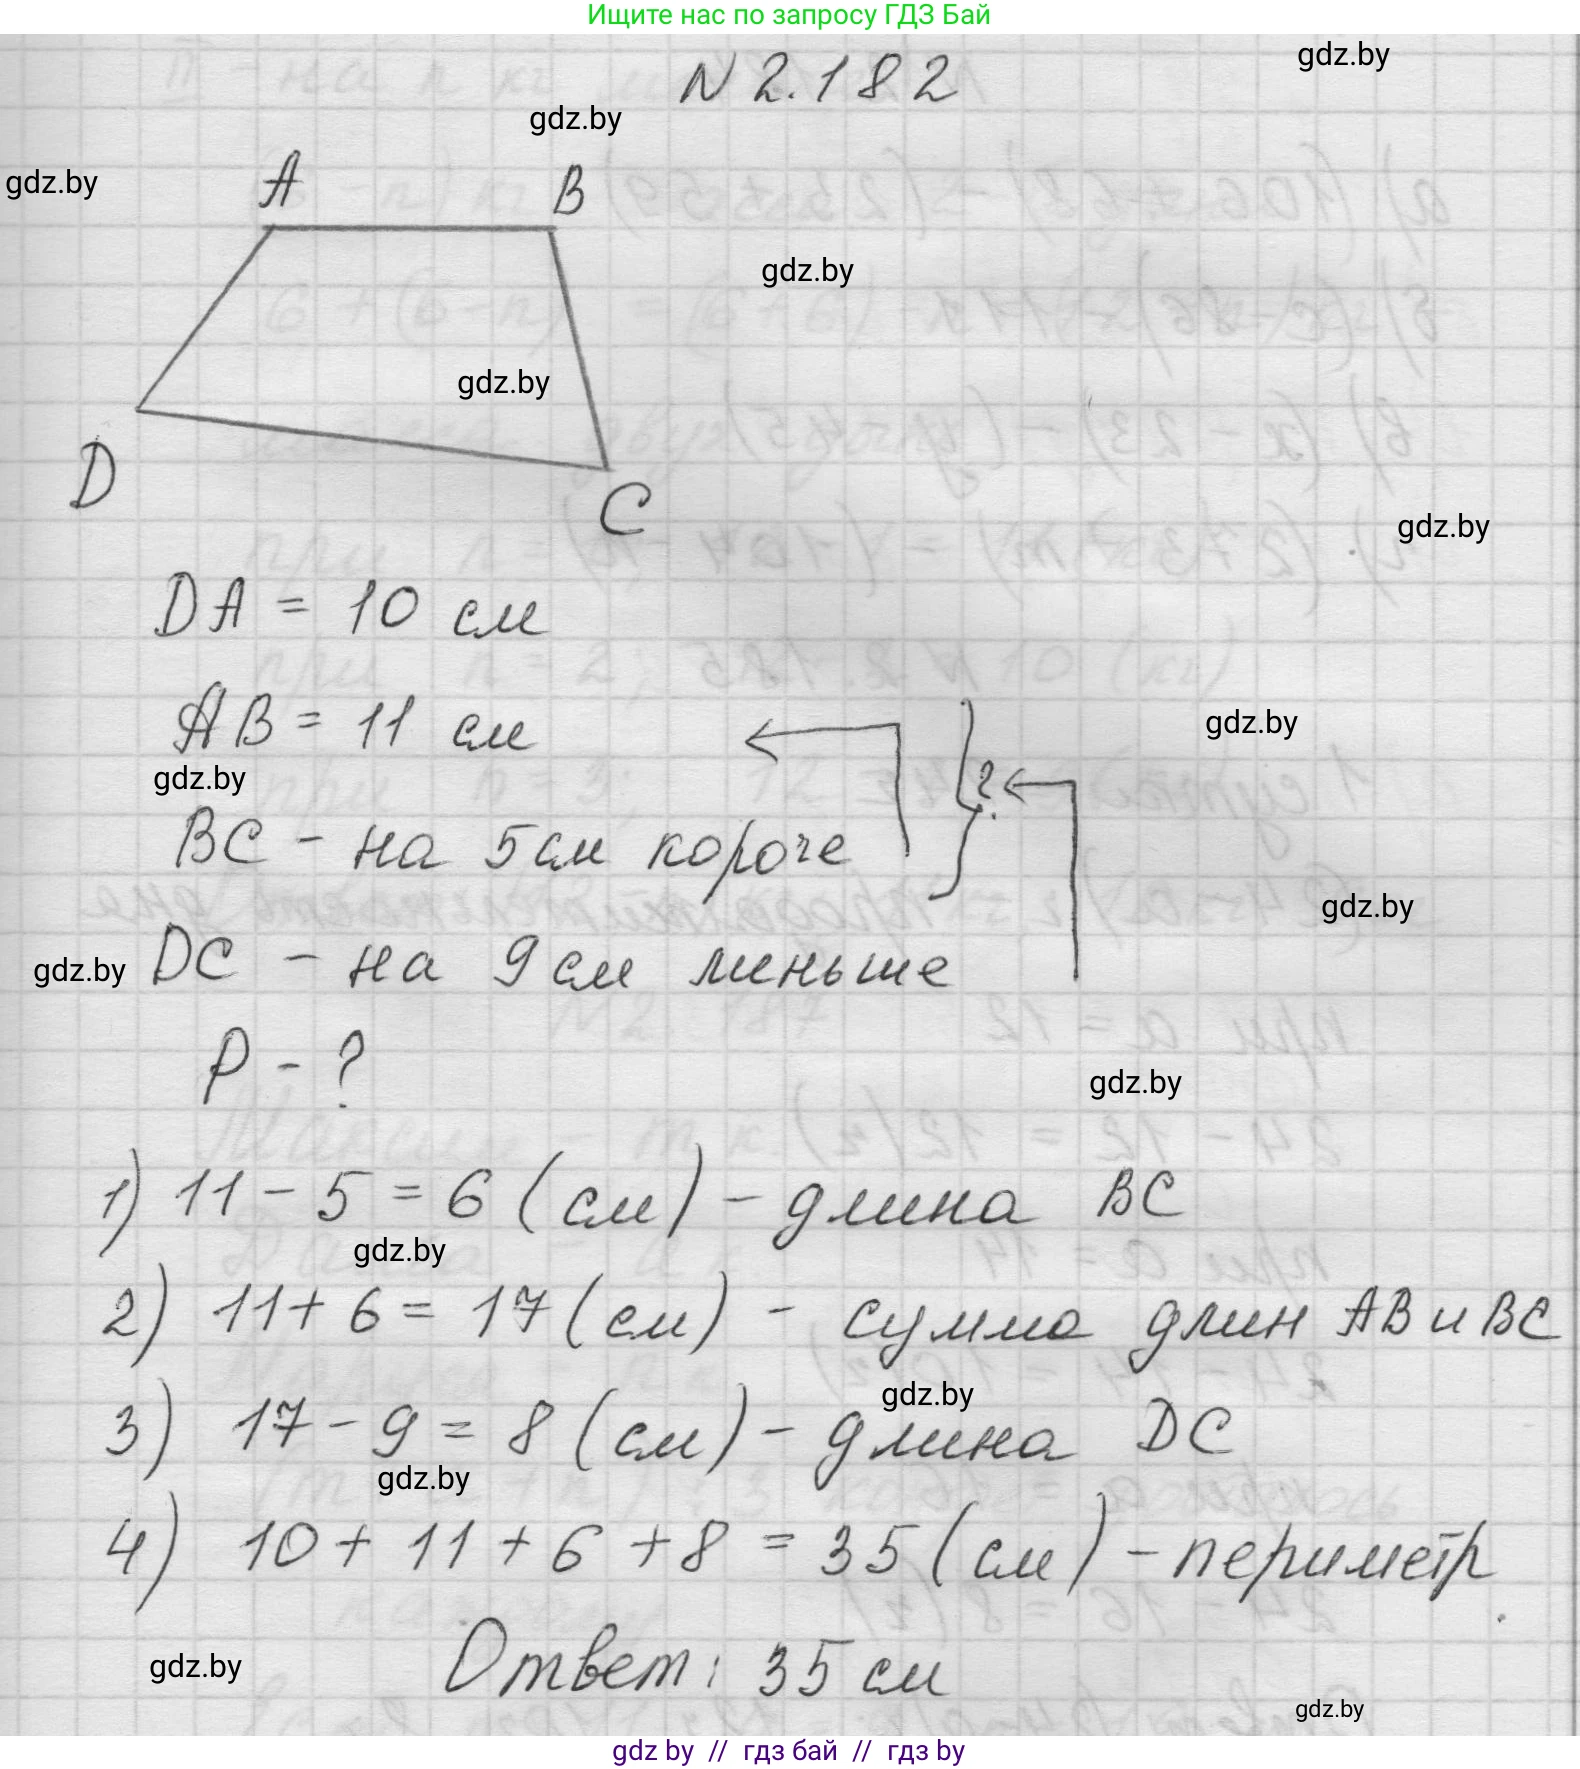 Ищите нас по запросу ГДЗ Бай
gdz.by
N 2.182
gdz.by
gdz.by
A
B
gdz.by
gdz.by
D
C
gdz.by
DA = 10 см
AB = 11 см
gdz.by
?
gdz.by
BC - на 5 см короче
gdz.by
gdz.by
DC - на 9 см меньше
P - ?
gdz.by
1) 11 - 5 = 6 (см) - длина BC
gdz.by
2) 11 + 6 = 17 (см) - сумма длин AB и BC
gdz.by
3) 17 - 9 = 8 (см) - длина DC
gdz.by
4) 10 + 11 + 6 + 8 = 35 (см) - периметр.
Ответ: 35 см
gdz.by
gdz.by
gdz by // гдз бай // гдз by